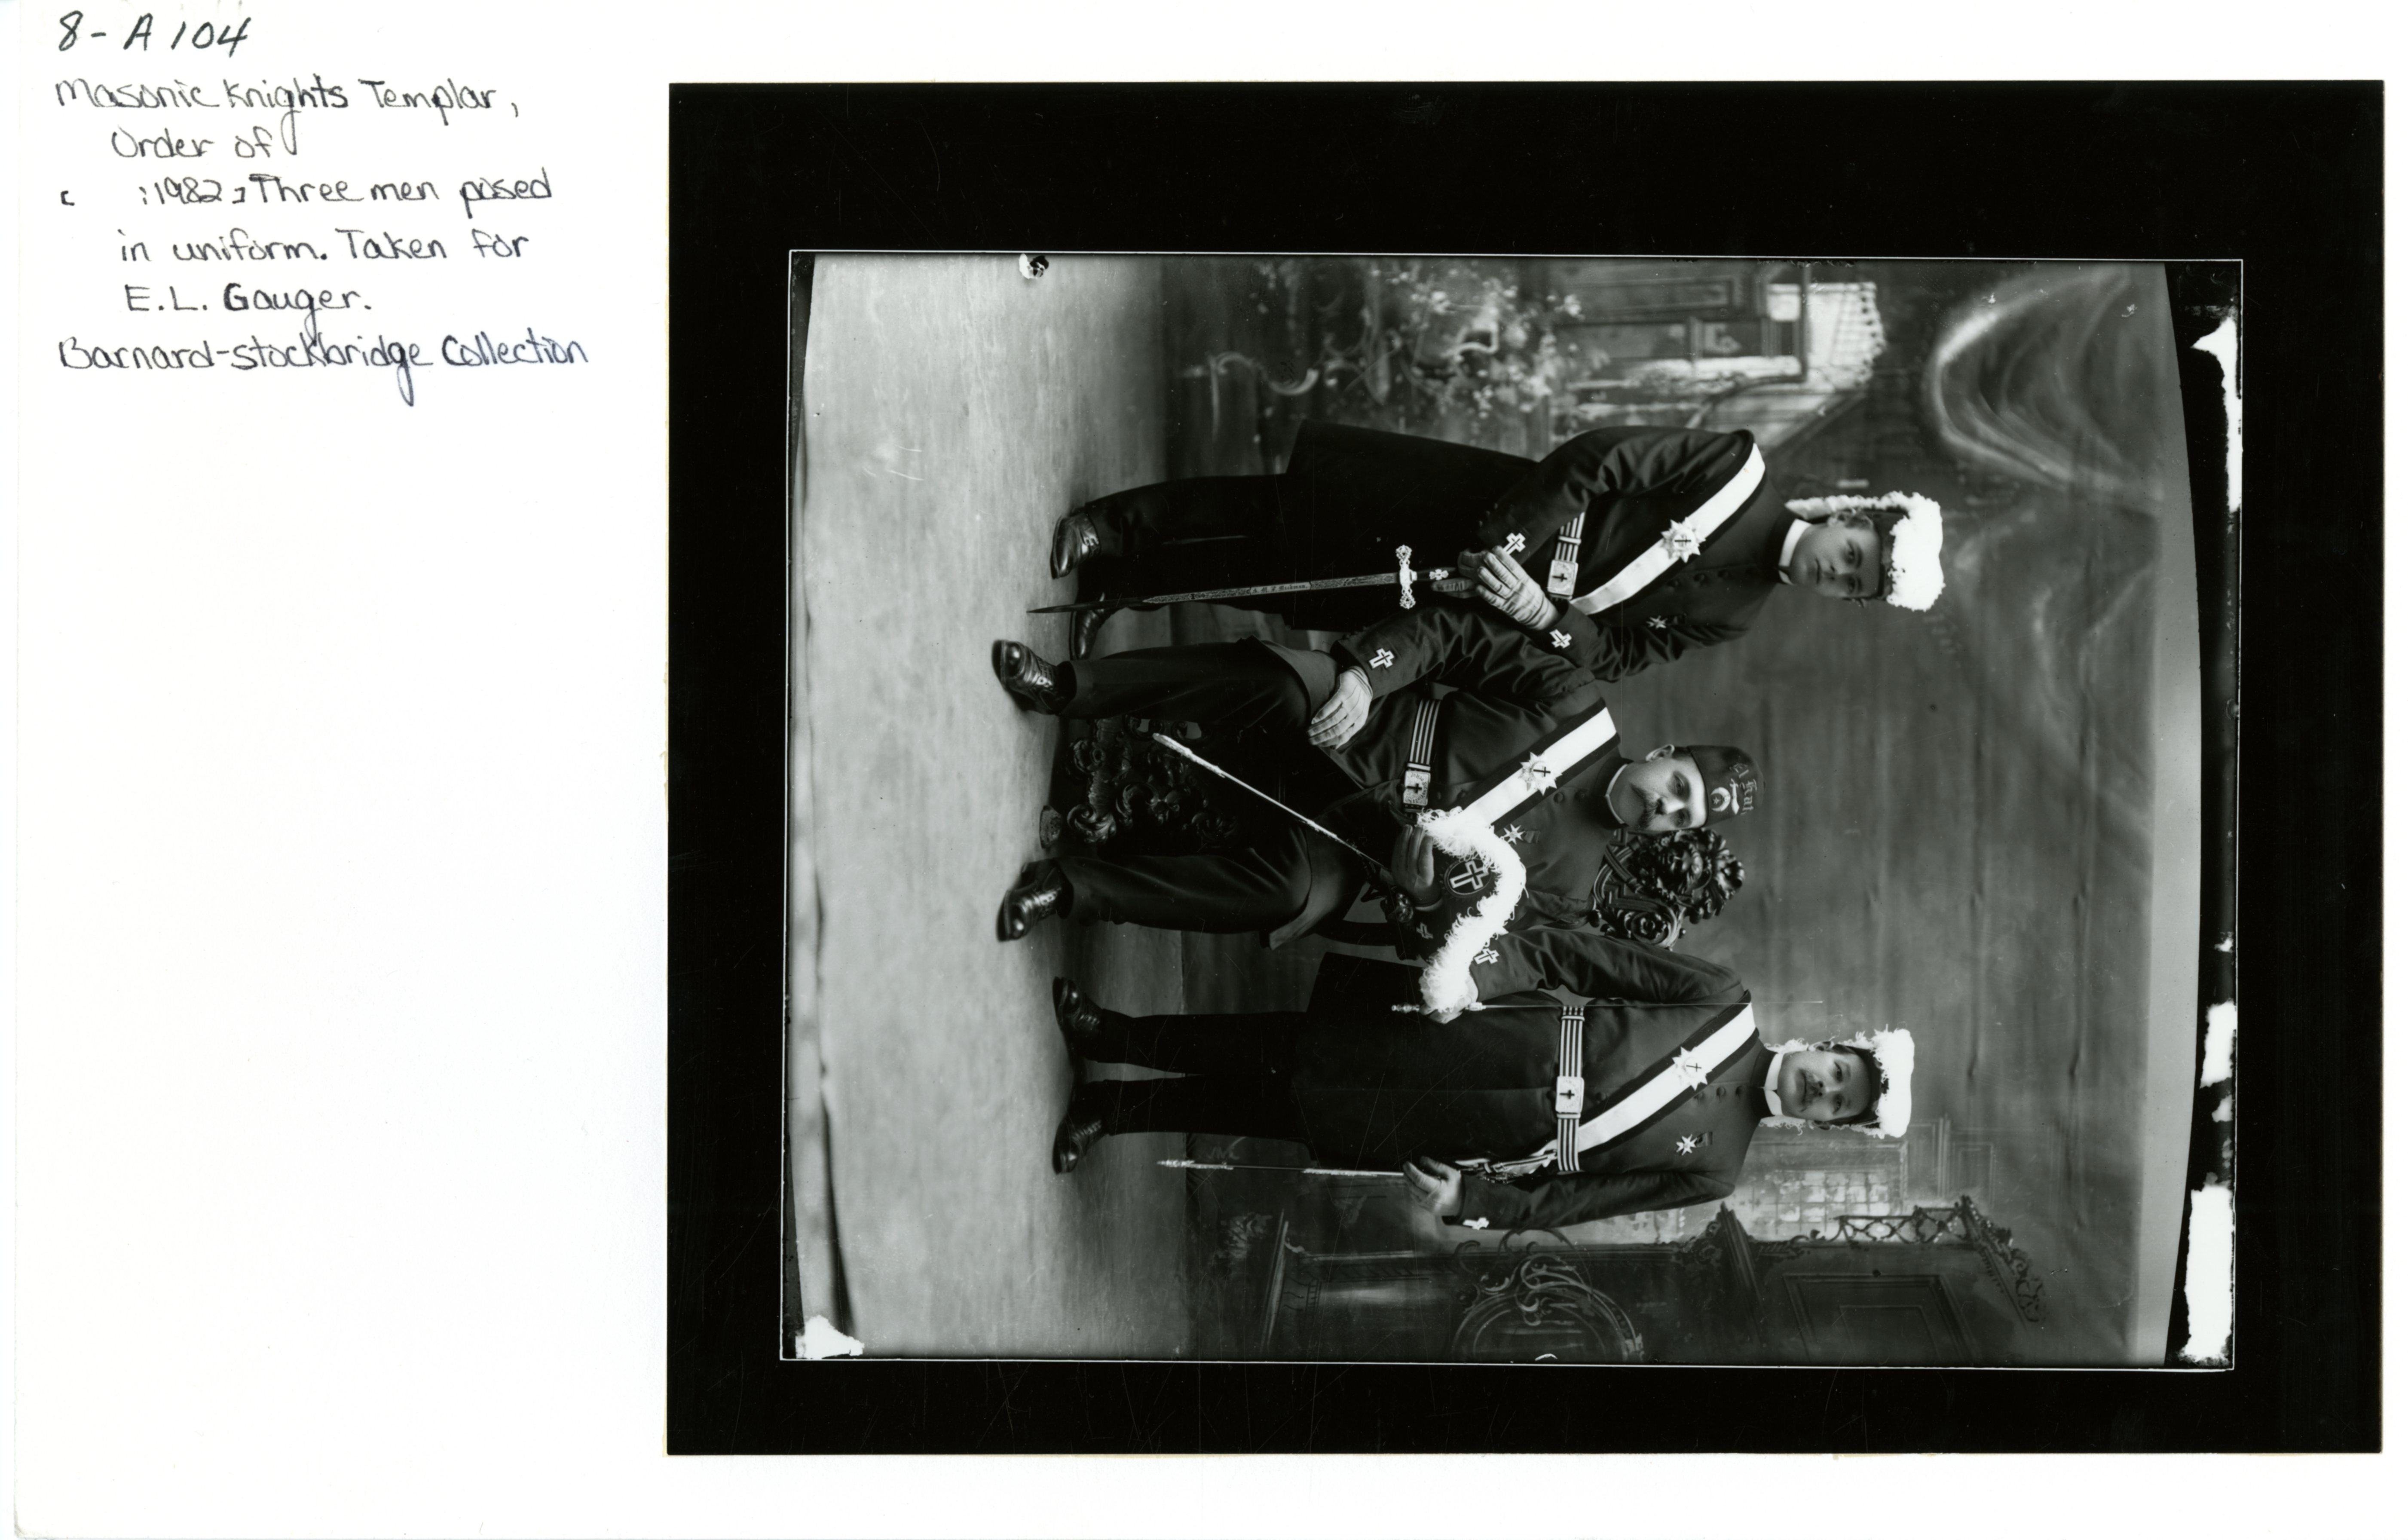 8-A104
Masonic Knights Templar,
Order of
[ :1982] Three men posed
in uniform. Taken for
E.L. Gauger.
Barnard-Stockbridge Collection
El Kat